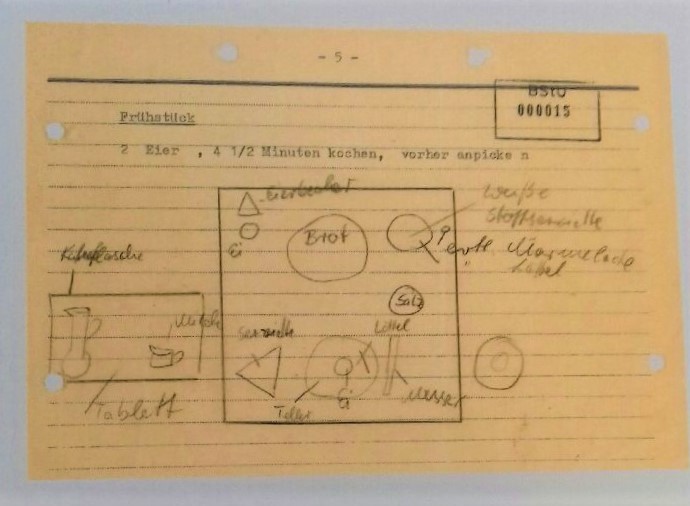 - 5 -
BStU
000015
Frühstück
2 Eier , 4 1/2 Minuten kochen, vorher anpicke n
Eierbecher
weiße
Stoffserviette
Ei
Brot
Marmelade
Löffel
Salz
Milch
Serviette
Löffel
Tablett
Teller
Ei
Messer